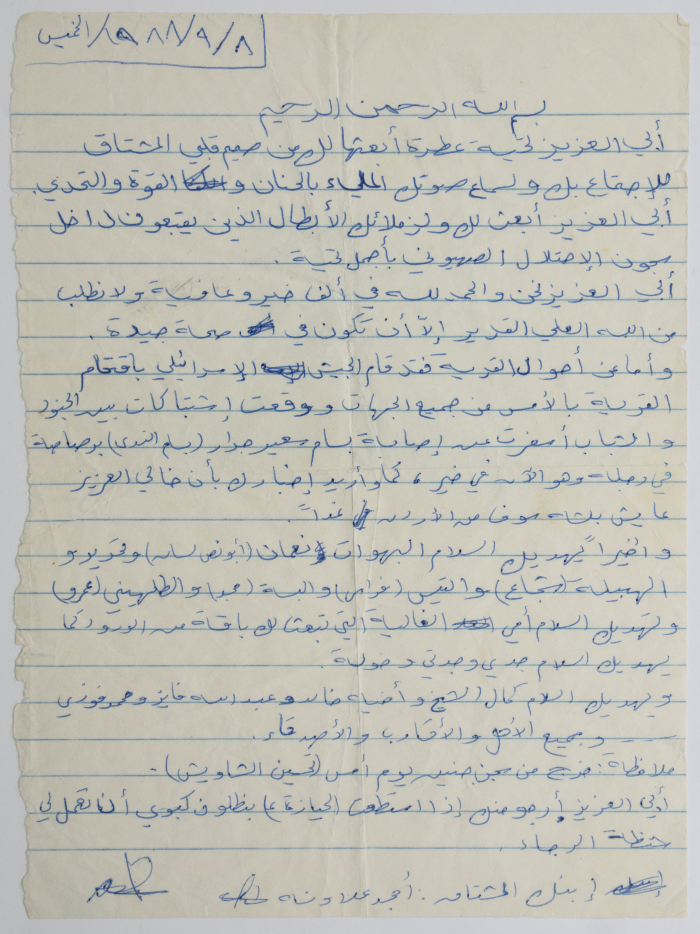 ١٩٨٨/٩/٨/ الخميس
بسم الله الرحمن الرحيم
أبي العزيز تحية عطرة أبعثها لك من صميم قلبي المشتاق
للإجتماع بك ولسماع صوتك المليء بالحنان و القوة والتحدي.
أبي العزيز أبعث لك ولزملائك الأبطال الذين يقبعون داخل
سجون الإحتلال الصهيوني بأجمل تحية.
أبي العزيز نحن والحمد لله في ألف خير وعافية ولا نطلب
من الله العلي القدير إلاّ أن تكون في صحة جيدة.
وأما عن أحوال القرية فقد قام الجيش الإسرائيلي باقتحام
القرية بالأمس من جميع الجهات ووقعت إشتباكات بين الجنود
والشباب أسفرت عن إصابة بسام سعيد جرار (بسام الندى) برصاصة
في رجله وهو الآن في خير، كما وأريد إخبارك بأن خالي العزيز
عايش سوف من الأردن غداً.
وأخيراً يهديك السلام نعمان (أبو نص لسان) و
الهبيلة (شجاع) والتيس والبسة و (عمرو)
وتهديك السلام أمي الغالية التي تبعث لك باقة من الورود كما
يهديك السلام جدي وجدتي وخولة.
ويهديك السلام كمال الشيخ وأخيه خالد وعبد الله فايز ومحمد فوزي
وجميع الأهل والأقارب والأصدقاء.
ملاحظة: خرج من سجن جنيد يوم أمس (تحسين الشاويش).
أبي العزيز أرجو منك إذا استطعت بنطلون كبوي أن تعمل لي
شنطة الرجاء.
إبنك المشتاق: أمجد علاونه